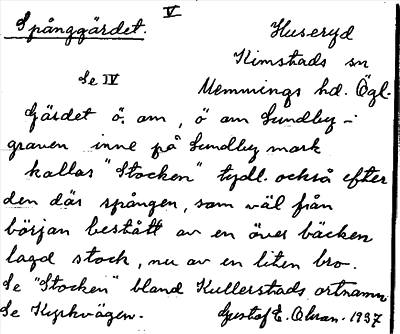 V
Spånggärdet.
Huseryd
Kimstads sn
Se IV
Memmings hd. Ögl.
Gärdet ö. om, ö om Sundby-
graven inne på Sundby mark
kallas "Stocken" tydl. också efter
den där spången, som väl från
början bestått av en över bäcken
lagd stock, nu av en liten bro.
Se "Stocken" bland Kullerstads ortnamn
Se Kyrkvägen.
Gustaf E. Ohran. 1937